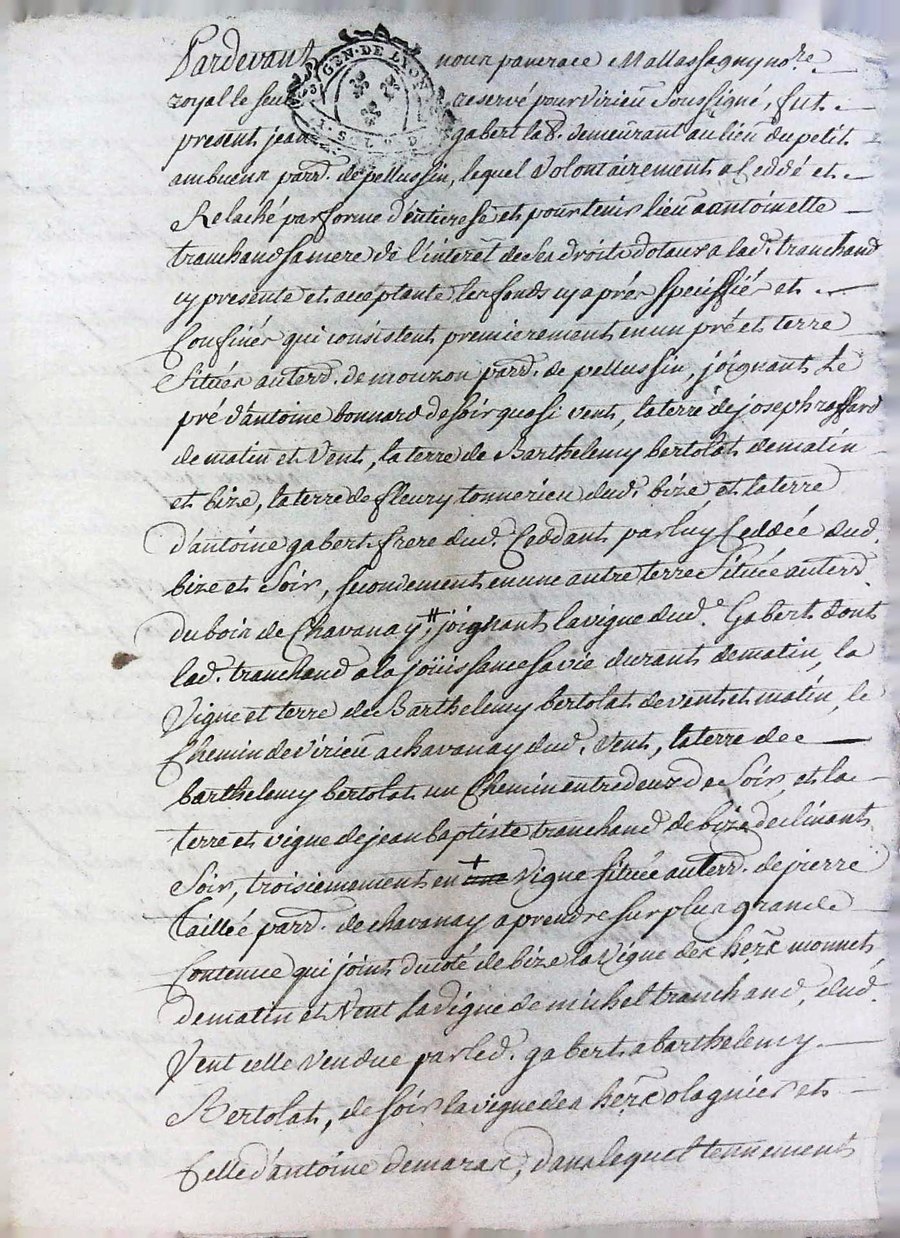 Pardevant nous panerace Mallassagny no.re
royal le seul reservé pour virieu soussigné, fut
GEN. DE LYON
present jean gabert la.r demeurant au lieu du petit
ambueux parr. de pellussin, lequel volontairement a Ceddé et
Relaché par forme d'enticrese et pour tenir lieu a antoinette
tranchand sa mere de l'interet de ses droits dotaux a lad. tranchand
cy presente et acceptante les fonds cy aprés speciffiés et
Confinés qui consistent premierement en un pré et terre
Situés au terr. de mouzon parr. de pellussin, joignant Le
pré d'antoine bonnard de soir quasi vent, la terre de joseph raffard
de matin et vent, la terre de Barthelemy bertolat de matin
et bize, la terre de fleury tonnerieu dud. bize et la terre
d'antoine gabert frere dud. Ceddant par luy Ceddée dud.
bize et Soir, secondement en une autre terre Située au terr.
du bois de Chavanay, # joignant la vigne dud. Gabert dont
lad. tranchand a la joüissance sa vie durant de matin, la
Vigne et terre de Barthelemy bertolat de vent et matin, le
Chemin de virieu a chavanay dud. vent, la terre de
barthelemy bertolat un Chemin entre deux de Soir, et la
terre et vigne de jean baptiste tranchand de bize declinant
Soir, troisiemement en + une vigne située au terr. de pierre
Taillée parr. de chavanay a prendre sur plus grande
Contenue qui joint du coté de bize la vigne des her.s monnet
de matin et vent la vigne de michel tranchand, dud.
Vent celle vendue par led. gabert a barthelemy
Bertolat, de soir la vigne des her.s olagnier et
Celle d'antoine demaras, dans lequel tennement